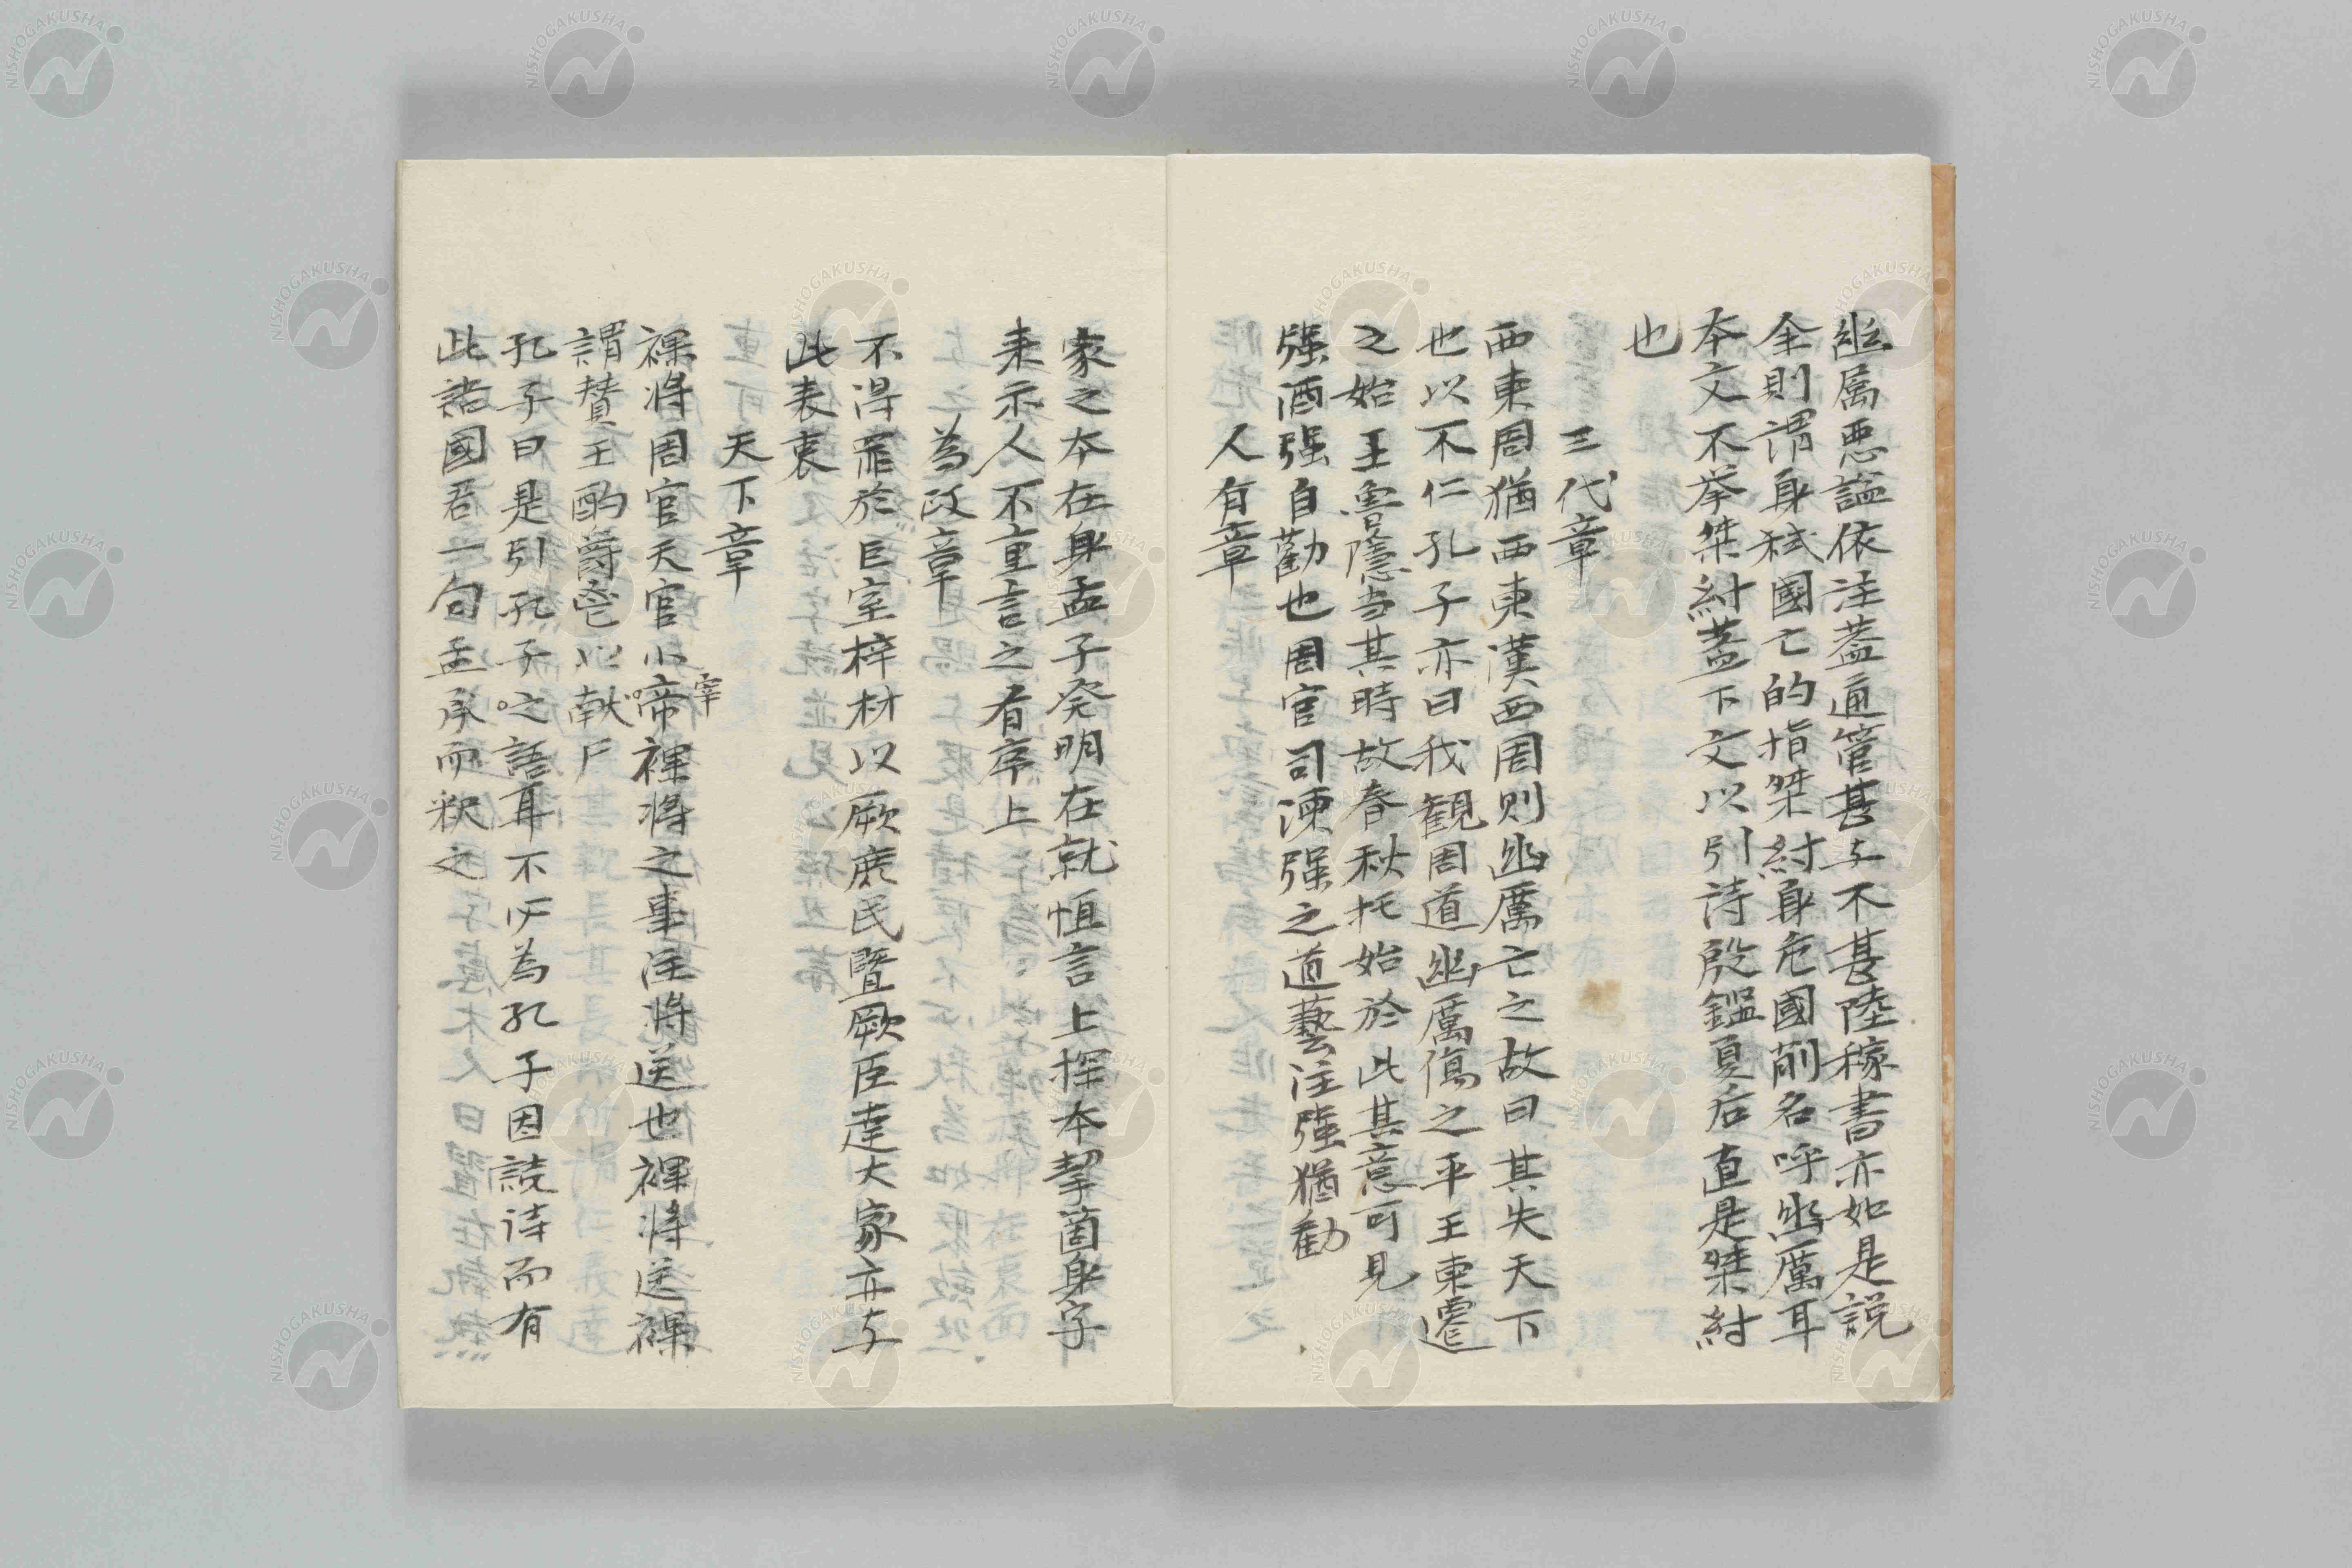 幽厲惡謚依注蓋通管甚与不甚陸稼書亦如是說
全則謂身弒國亡的指桀紂身危國削名呼幽厲耳
本文不举桀紂蓋下文以引詩殷鑑夏后直是桀紂
也
三代章
西東周猶西東漢西周則幽厲亡之故曰其失天下
也以不仁孔子亦曰我観周道幽厲傷之平王東遷
之始王魯隱当其時故春秋托始於此其意可見
强酒强自勸也周官司諫强之道藝注强猶勸
人有章
家之本在身孟子発明在就恒言上探本挈箇身字
来示人不重言之有序上
為政章
不得罪於巨室梓材以厥庶民暨厥臣達大家亦与
此表裏
天下章
裸將周官天官小宰裸將之事注將送也裸將送裸
謂賛王酌鬱鬯以献尸
孔子曰是引孔子之語耳不必為孔子因読詩而有
此語國君一句孟承而釈之
NISHOGAKUSHA